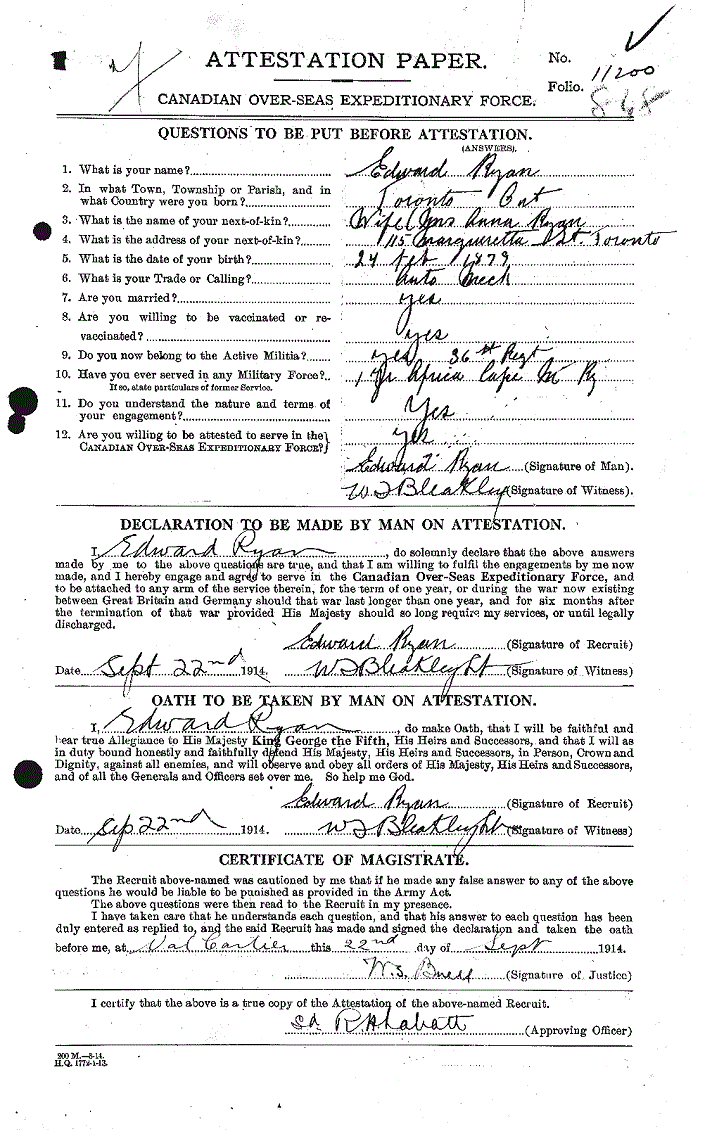 ATTESTATION PAPER.
No. 11200
Folio.
CANADIAN OVER-SEAS EXPEDITIONARY FORCE.
QUESTIONS TO BE PUT BEFORE ATTESTATION.
(ANSWERS).
1. What is your name? Edward Ryan
2. In what Town, Township or Parish, and in
what Country were you born? Toronto Ont
3. What is the name of your next-of-kin? Wife (Mrs Anna Ryan
4. What is the address of your next-of-kin? 115 Margueretta St. Toronto
5. What is the date of your birth? 24 Feb 1879
6. What is your Trade or Calling? Auto Mech
7. Are you married? yes
8. Are you willing to be vaccinated or re-
vaccinated? yes
9. Do you now belong to the Active Militia? yes 36st Regt
10. Have you ever served in any Military Force? 1 Yr Africa Cape M R
If so, state particulars of former Service.
11. Do you understand the nature and terms of
your engagement? Yes
12. Are you willing to be attested to serve in the
CANADIAN OVER-SEAS EXPEDITIONARY FORCE? yes
Edward Ryan (Signature of Man).
W J Bleakley (Signature of Witness).
DECLARATION TO BE MADE BY MAN ON ATTESTATION.
I, Edward Ryan, do solemnly declare that the above answers
made by me to the above questions are true, and that I am willing to fulfil the engagements by me now
made, and I hereby engage and agree to serve in the Canadian Over-Seas Expeditionary Force, and
to be attached to any arm of the service therein, for the term of one year, or during the war now existing
between Great Britain and Germany should that war last longer than one year, and for six months after
the termination of that war provided His Majesty should so long require my services, or until legally
discharged.
Edward Ryan (Signature of Recruit)
Date Sept 22nd 1914. W J Bleakley (Signature of Witness)
OATH TO BE TAKEN BY MAN ON ATTESTATION.
I, Edward Ryan, do make Oath, that I will be faithful and
bear true Allegiance to His Majesty King George the Fifth, His Heirs and Successors, and that I will as
in duty bound honestly and faithfully defend His Majesty, His Heirs and Successors, in Person, Crown and
Dignity, against all enemies, and will observe and obey all orders of His Majesty, His Heirs and Successors,
and of all the Generals and Officers set over me. So help me God.
Edward Ryan (Signature of Recruit)
Date Sep 22nd 1914. W J Bleakley (Signature of Witness)
CERTIFICATE OF MAGISTRATE.
The Recruit above-named was cautioned by me that if he made any false answer to any of the above
questions he would be liable to be punished as provided in the Army Act.
The above questions were then read to the Recruit in my presence.
I have taken care that he understands each question, and that his answer to each question has been
duly entered as replied to, and the said Recruit has made and signed the declaration and taken the oath
before me, at Val Cartier this 22nd day of Sept 1914.
W.S. Buell (Signature of Justice)
I certify that the above is a true copy of the Attestation of the above-named Recruit.
(Approving Officer)
200 M.—8-14.
H.Q. 1772-1-13.